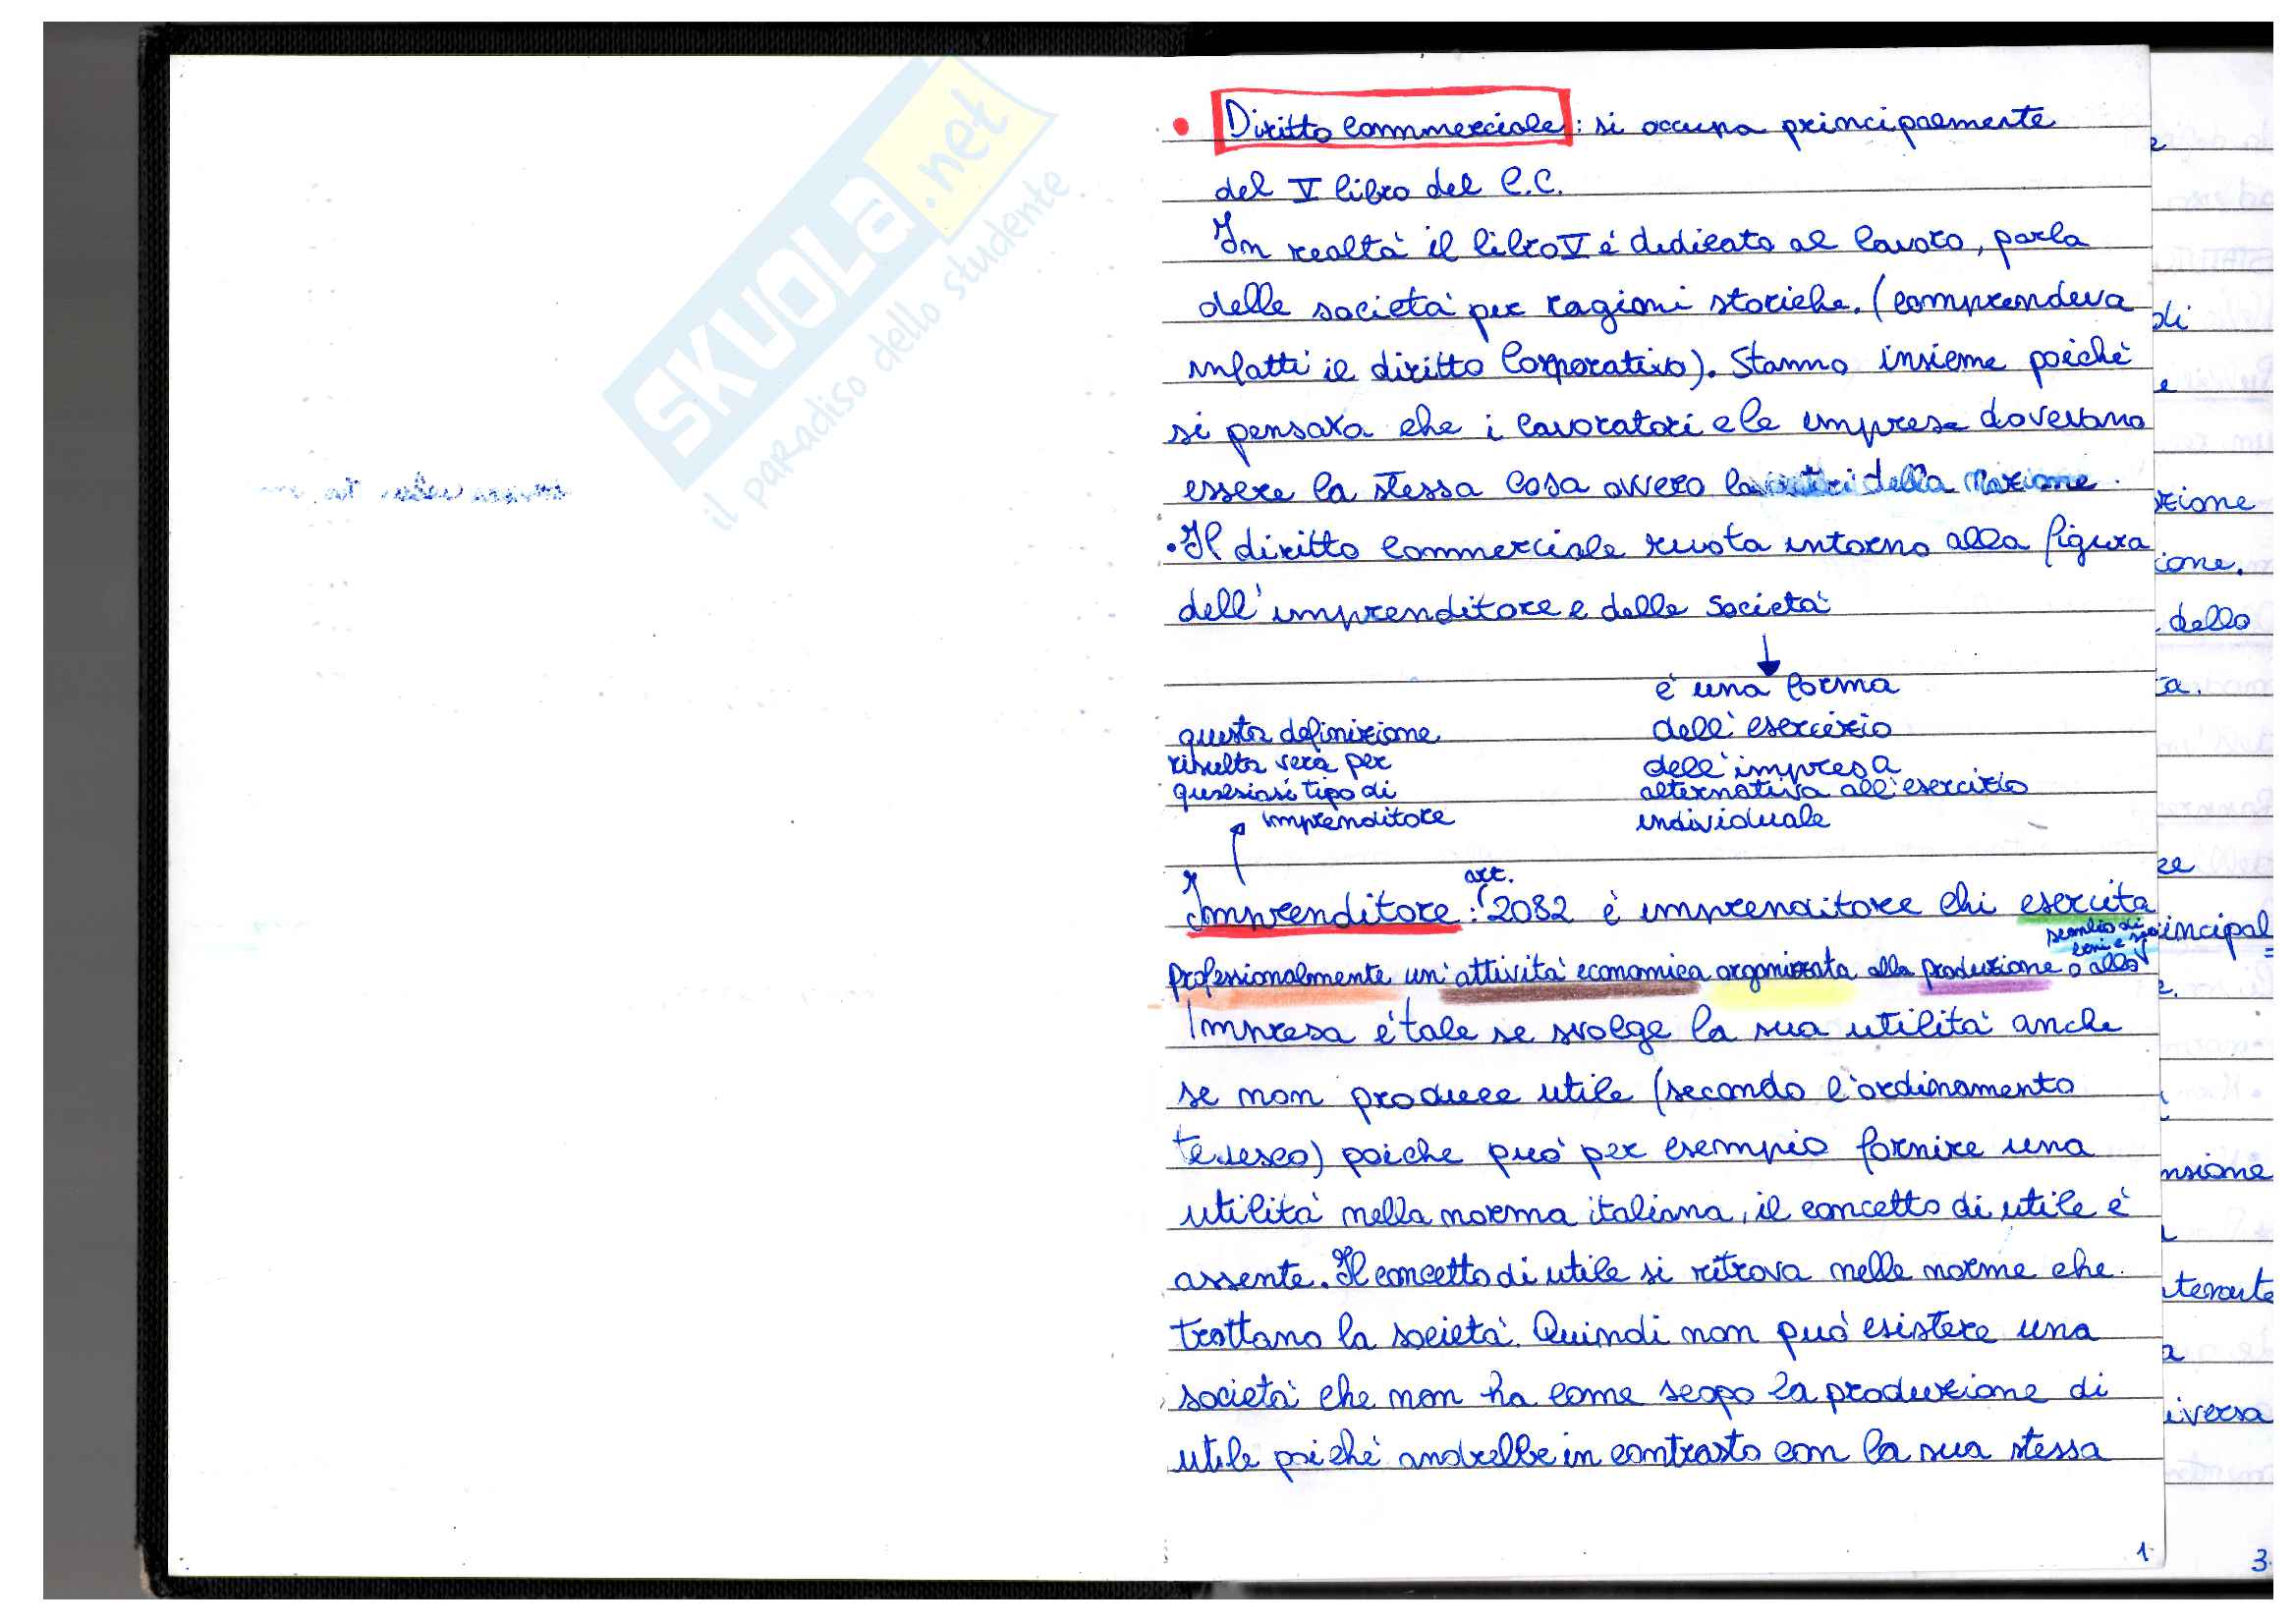 SKUOLA.net
il paradiso dello studente
• Diritto commerciale: si occupa principalmente
del V libro del C.C.
In realtà il libro V é dedicato al lavoro, parla
delle società per ragioni storiche. (comprendeva
infatti il diritto Corporativo). Stanno insieme poiché
si pensava che i lavoratori e le imprese dovevano
essere la stessa cosa ovvero della Nazione.
• Il diritto commerciale ruota intorno alla figura
dell'imprenditore e delle società
è una forma
dell'esercizio
dell'impresa
alternativa all'esercizio
individuale
questa definizione
risulta vera per
qualsiasi tipo di
imprenditore
Imprenditore: art. 2082 è imprenditore chi esercita
professionalmente un'attività economica organizzata alla produzione o allo
scambio di
beni e
Impresa é tale se svolge la sua utilità anche
se non produce utile (secondo l'ordinamento
tedesco) poiche può per esempio fornire una
utilità nella norma italiana, il concetto di utile è
assente. Il concetto di utile si ritrova nelle norme che
trattano la società. Quindi non può esistere una
società che non ha come scopo la produzione di
utile poiché andrebbe in contrasto con la sua stessa
1
di
e
zione
ione.
dello
ta.
re
incipal
e.
nsione
a
iversa
3